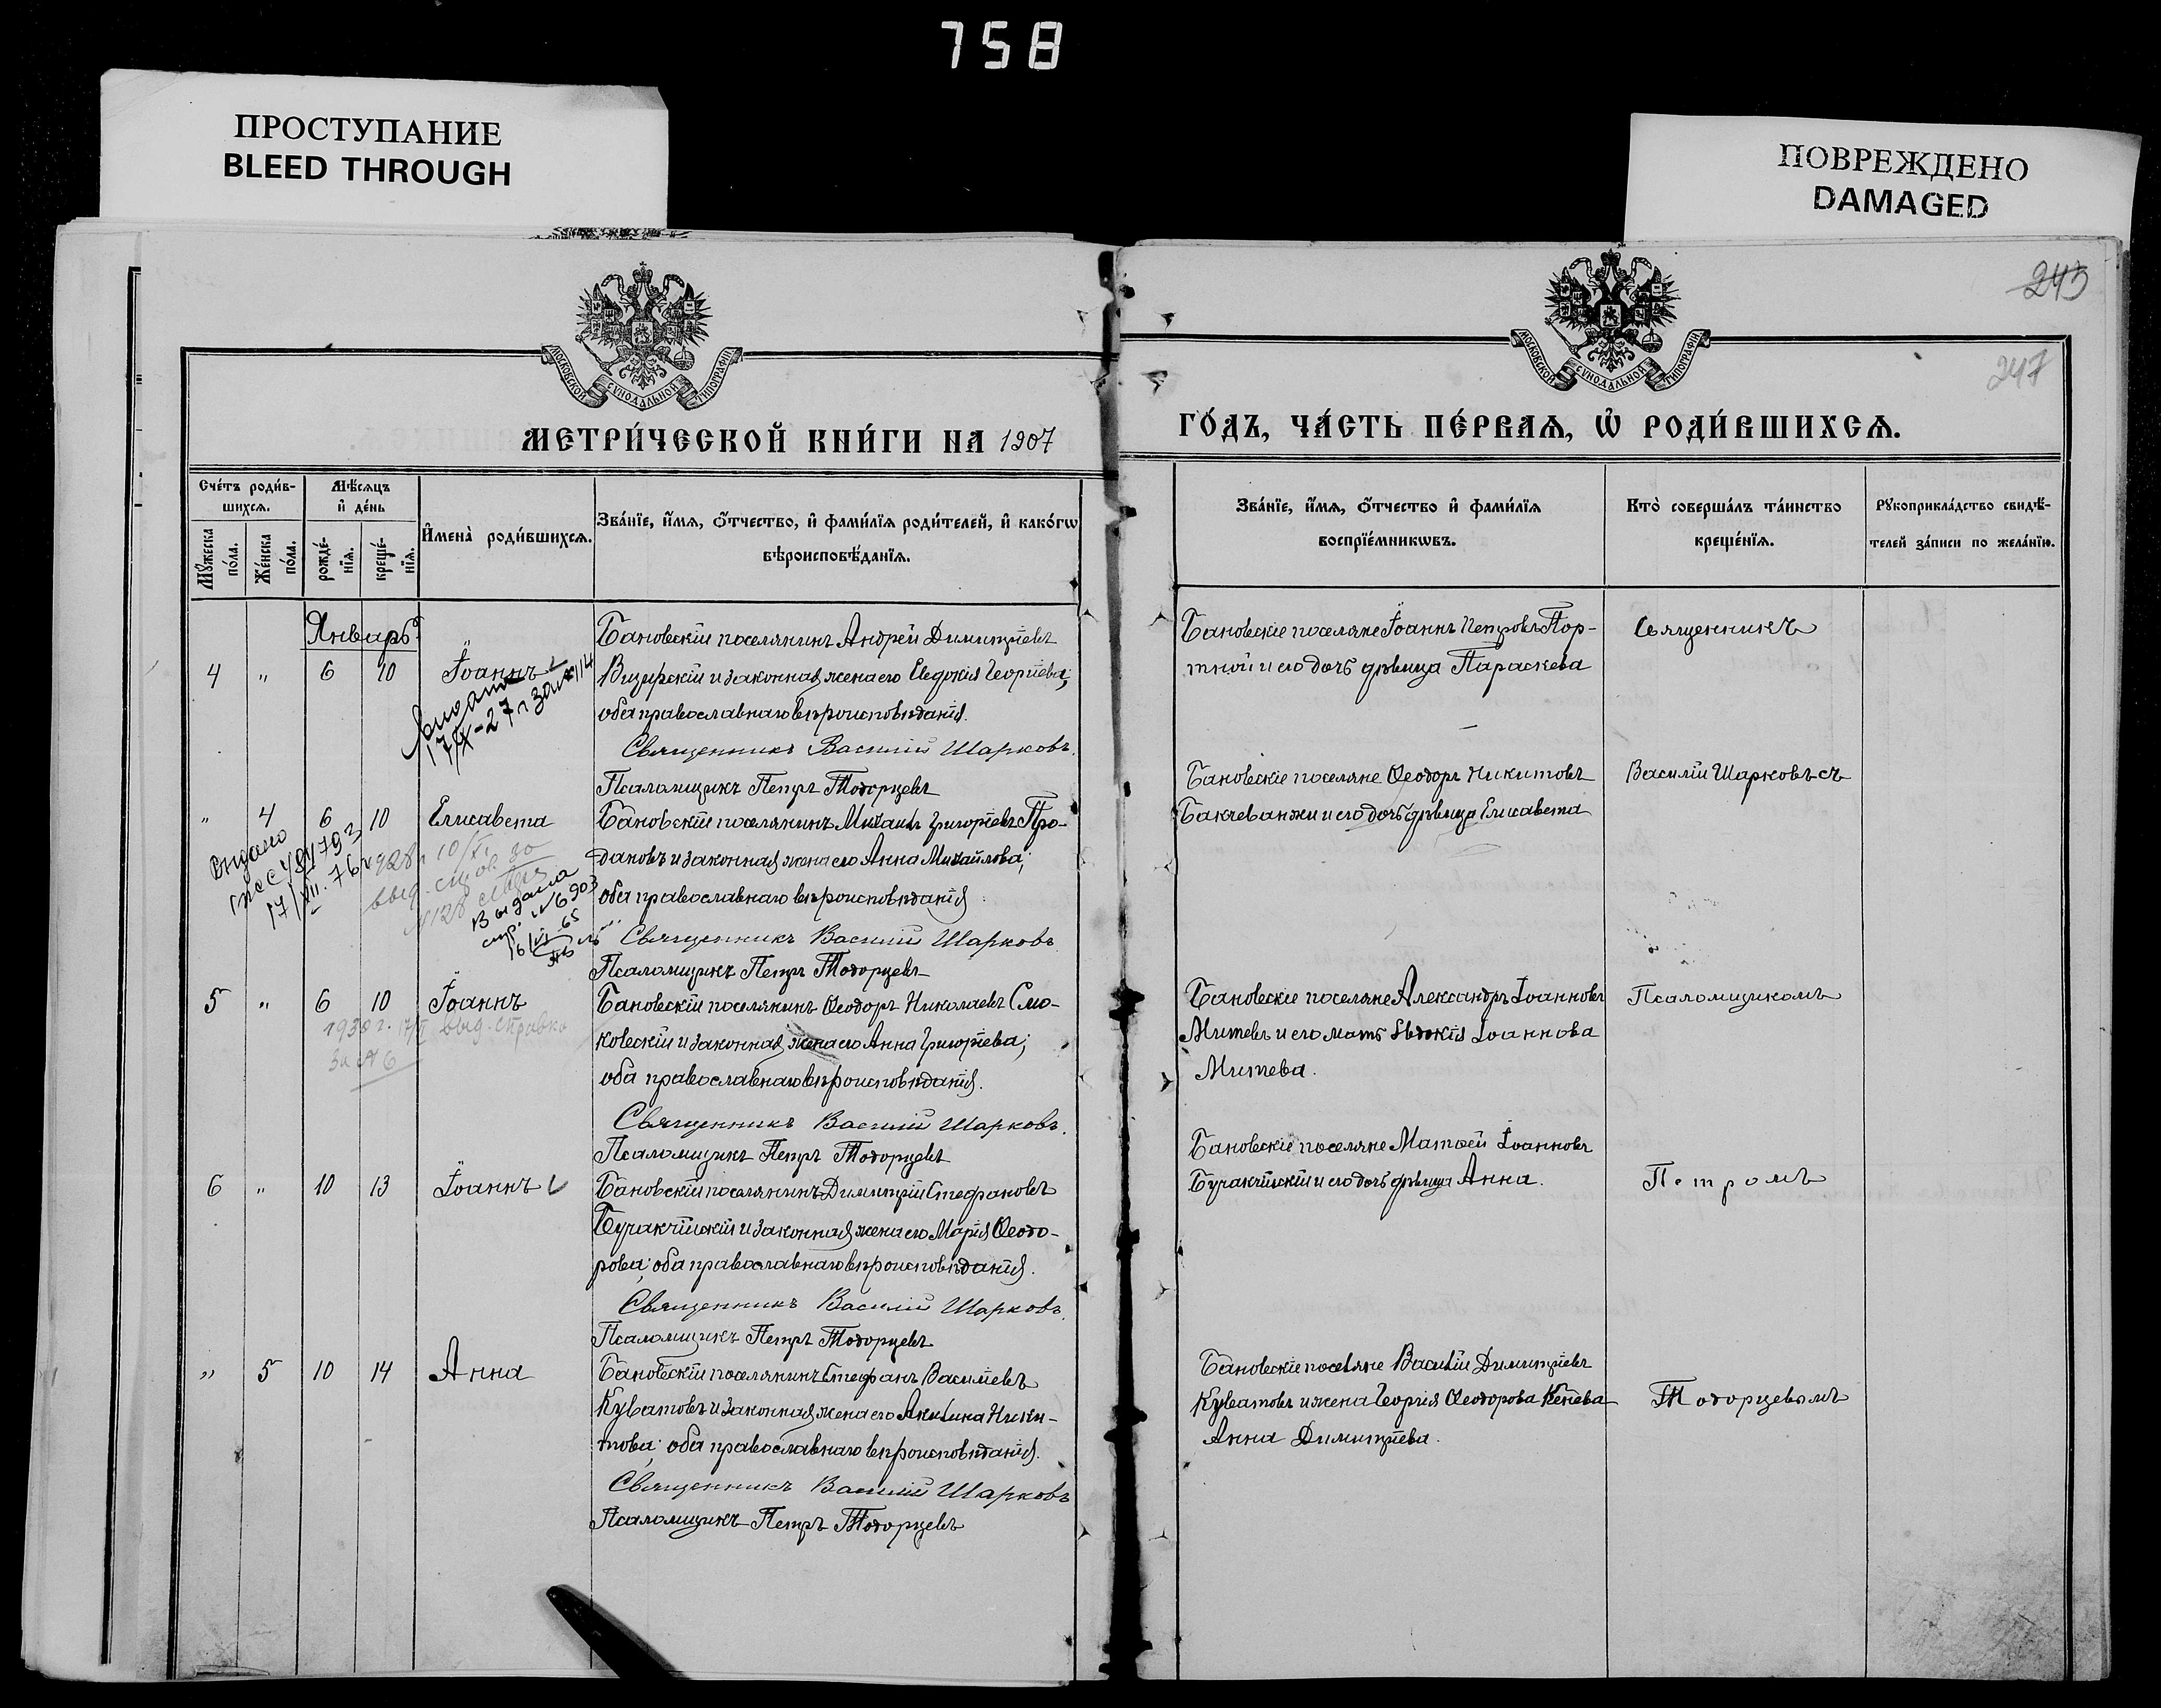 758
ПРОСТУПАНИЕ
BLEED THROUGH
ПОВРЕЖДЕНО
DAMAGED
243
247
МОСКОВСКОЙ СѴНОДАЛЬНОЙ ТИПОГРАФІИ
МОСКОВСКОЙ СѴНОДАЛЬНОЙ ТИПОГРАФІИ
МЕТРИ́ЧЕСКОЙ КНИ́ГИ НА 1907
ГО́ДЪ, ЧА́СТЬ ПЕ́РВАѦ, Ѡ҆ РОДИ́ВШИХСѦ.
Сче́тъ роди́в-
шихсѧ.
Мꙋ́жеска по́ла.
Же́нска по́ла.
Мѣ́сѧцъ
и҆ де́нь
рожде́-нїѧ.
креще́-нїѧ.
И҆мена̀ роди́вшихсѧ.
Зва́нїе, и҆́мѧ, ѻ҆́тчество, и҆ фами́лїѧ роди́телей, и҆ како́гѡ
вѣроисповѣ́данїѧ.
Зва́нїе, и҆́мѧ, ѻ҆́тчество и҆ фами́лїѧ
воспрїе́мникѡвъ.
Кто̀ соверша́лъ та́инство
креще́нїѧ.
Рꙋкоприкла́дство свидѣ́-
телей за́писи по жела́нїю.
Январь
4 " 6 10 Іоаннъ
Бановскій поселянинъ Андрей Димитріевъ
Визирскій и законная жена его Евдокія Георгіева;
оба православнаго вѣроисповѣданія.
Священникъ Василій Шарковъ.
Псаломщикъ Петръ Тодорцевъ
Бановскіе поселяне Іоаннъ Петровъ Пор-
тной и его дочь дѣвица Параскева
Священникъ
" 4 6 10 Елисавета
Бановскій поселянинъ Михаилъ Григоріевъ Про-
дановъ и законная жена его Анна Михайлова;
оба православнаго вѣроисповѣданія
Священникъ Василій Шарковъ
Псаломщикъ Петръ Тодорцевъ
Выдано
17/VII. 76
Выдана
спр. №6903
Бановскіе поселяне Ѳеодоръ Никитовъ
Бакчеванжи и его дочь дѣвица Елисавета
Василій Шарковъ съ
5 " 6 10 Іоаннъ
1930 г. выд. справка
за № 6
Бановскій поселянинъ Ѳеодоръ Николаевъ Смо-
ковскій и законная жена его Анна Григоріева;
оба православнаго вѣроисповѣданія.
Священникъ Василій Шарковъ.
Псаломщикъ Петръ Тодорцевъ
Бановскіе поселяне Александръ Іоанновъ
Митевъ и его мать Евдокія Іоаннова
Митева.
Псаломщикомъ
6 " 10 13 Іоаннъ
Бановскій поселянинъ Димитрій Стефановъ
Бучакчійскій и законная жена его Марія Ѳеодо-
рова; оба православнаго вѣроисповѣданія.
Священникъ Василій Шарковъ.
Псаломщикъ Петръ Тодорцевъ
Бановскіе поселяне Матѳей Іоанновъ
Бучакчійскій и его дочь дѣвица Анна.
Петромъ
" 5 10 14 Анна
Бановскій поселянинъ Стефанъ Василіевъ
Куватовъ и законная жена его Акилина Ники-
това; оба православнаго вѣроисповѣданія.
Священникъ Василій Шарковъ
Псаломщикъ Петръ Тодорцевъ
Бановскіе поселяне Василій Димитріевъ
Куватовъ и жена Георгія Ѳеодорова Кенева
Анна Димитріева.
Тодорцевымъ